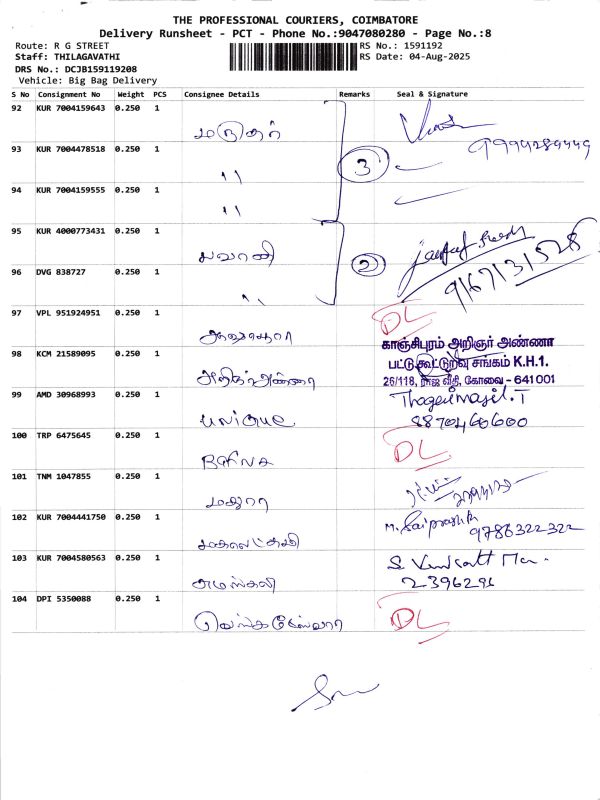 THE PROFESSIONAL COURIERS, COIMBATORE
Delivery Runsheet - PCT - Phone No.:9047080280 - Page No.:8
Route: R G STREET
RS No.: 1591192
Staff: THILAGAVATHI
RS Date: 04-Aug-2025
DRS No.: DCJB159119208
Vehicle: Big Bag Delivery
S No Consignment No Weight PCS Consignee Details Remarks Seal & Signature
92 KUR 7004159643 0.250 1
93 KUR 7004478518 0.250 1 " 3 9994289449
94 KUR 7004159555 0.250 1 "
95 KUR 4000773431 0.250 1 பவானி
96 DVG 838727 0.250 1 " 2 9167131528
97 VPL 951924951 0.250 1 DL
98 KCM 21589095 0.250 1
காஞ்சிபுரம் அறிஞர் அண்ணா
பட்டு கூட்டுறவு சங்கம் K.H.1.
26/118, ராஜ வீதி, கோவை - 641001
99 AMD 30968993 0.250 1 unique
8870460600
100 TRP 6475645 0.250 1 DL
101 TNM 1047855 0.250 1 மதுரா
102 KUR 7004441750 0.250 1 மகாலட்சுமி M. Saiprasath 9786322322
103 KUR 7004580563 0.250 1
2396296
104 DPI 5350088 0.250 1 வெங்கடேஸ்வரா DL